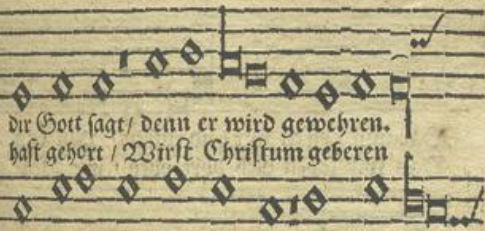 dir Gott sagt/ denn er wird gewehren.
hast gehort / Wirst Christum geberen